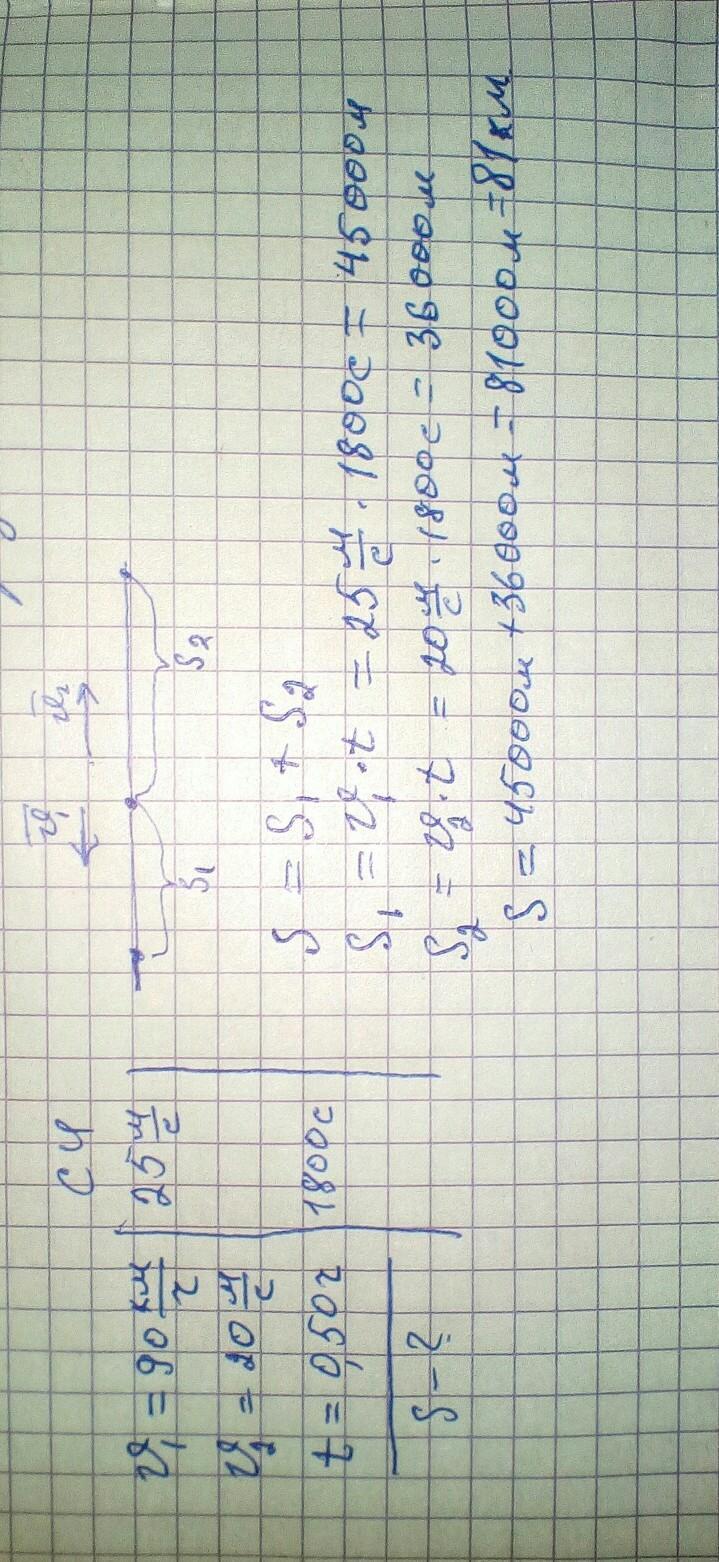 СИ
v₁ = 90 км/ч
25 м/с
v₂ = 20 м/с
t = 0,50 ч
1800с
S - ?
v₁ v₂
S₁ S₂
S = S₁ + S₂
S₁ = v₁·t = 25 м/с · 1800с = 45000м
S₂ = v₂·t = 20 м/с · 1800с = 36000м
S = 45000м + 36000м = 81000м = 81км